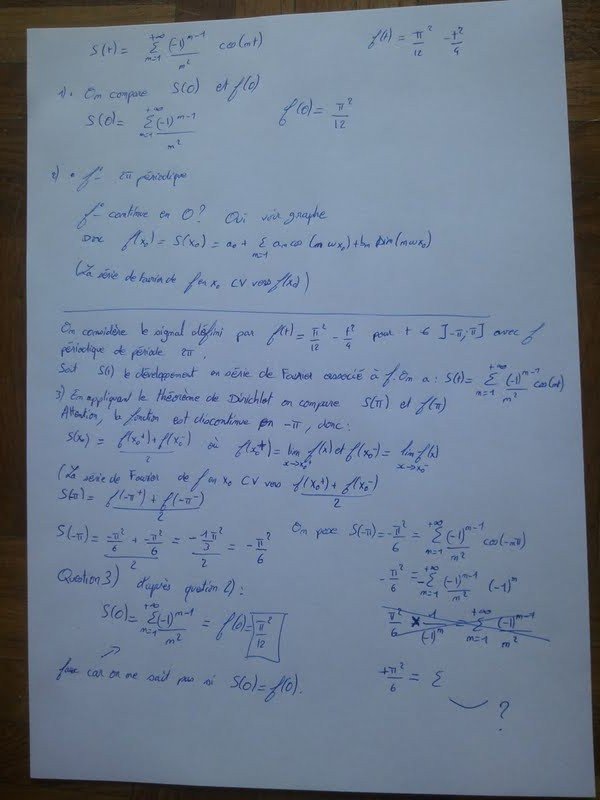 S(t) = Σ_{n=1}^{+∞} (-1)^{n-1}/n² cos(nt)    f(t) = π²/12 - t²/4
1) • On compare S(0) et f(0)
S(0) = Σ_{n=1}^{+∞} (-1)^{n-1}/n²    f(0) = π²/12
2) • f 2π périodique
f continue en 0? Oui voir graphe
Donc f(x₀) = S(x₀) = a₀ + Σ_{n=1} aₙ cos(nωx₀) + bₙ sin(nωx₀)
(La série de Fourier de f en x₀ CV vers f(x₀))
On considère le signal défini par f(t) = π²/12 - t²/4 pour t ∈ ]-π;π] avec f
périodique de période 2π.
Soit S(t) le développement en série de Fourier associé à f. On a : S(t) = Σ_{n=1}^{+∞} (-1)^{n-1}/n² cos(nt)
3) En appliquant le théorème de Dirichlet on compare S(π) et f(π)
Attention, la fonction est discontinue en -π, donc :
S(x₀) = (f(x₀⁺) + f(x₀⁻))/2 où f(x₀⁺) = lim_{x→x₀⁺} f(x) et f(x₀⁻) = lim_{x→x₀⁻} f(x)
(La série de Fourier de f en x₀ CV vers (f(x₀⁺) + f(x₀⁻))/2
S(-π) = (f(-π⁺) + f(-π⁻))/2
S(-π) = (-π²/6 + -π²/6)/2 = (-1π²/3)/2 = -π²/6    On pose S(-π) = -π²/6 = Σ_{n=1}^{+∞} (-1)^{n-1}/n² cos(-nπ)
-π²/6 = -Σ_{n=1}^{+∞} (-1)^{n-1}/n² (-1)^n
Question 3) d'après question 2) :
S(0) = Σ_{n=1}^{+∞} (-1)^{n-1}/n² = f(0) = π²/12    π²/6 × 1/(-1)^n = Σ_{n=1}^{+∞} (-1)^{n-1}/n²
faux car on ne sait pas si S(0) = f(0).    +π²/6 = Σ
?